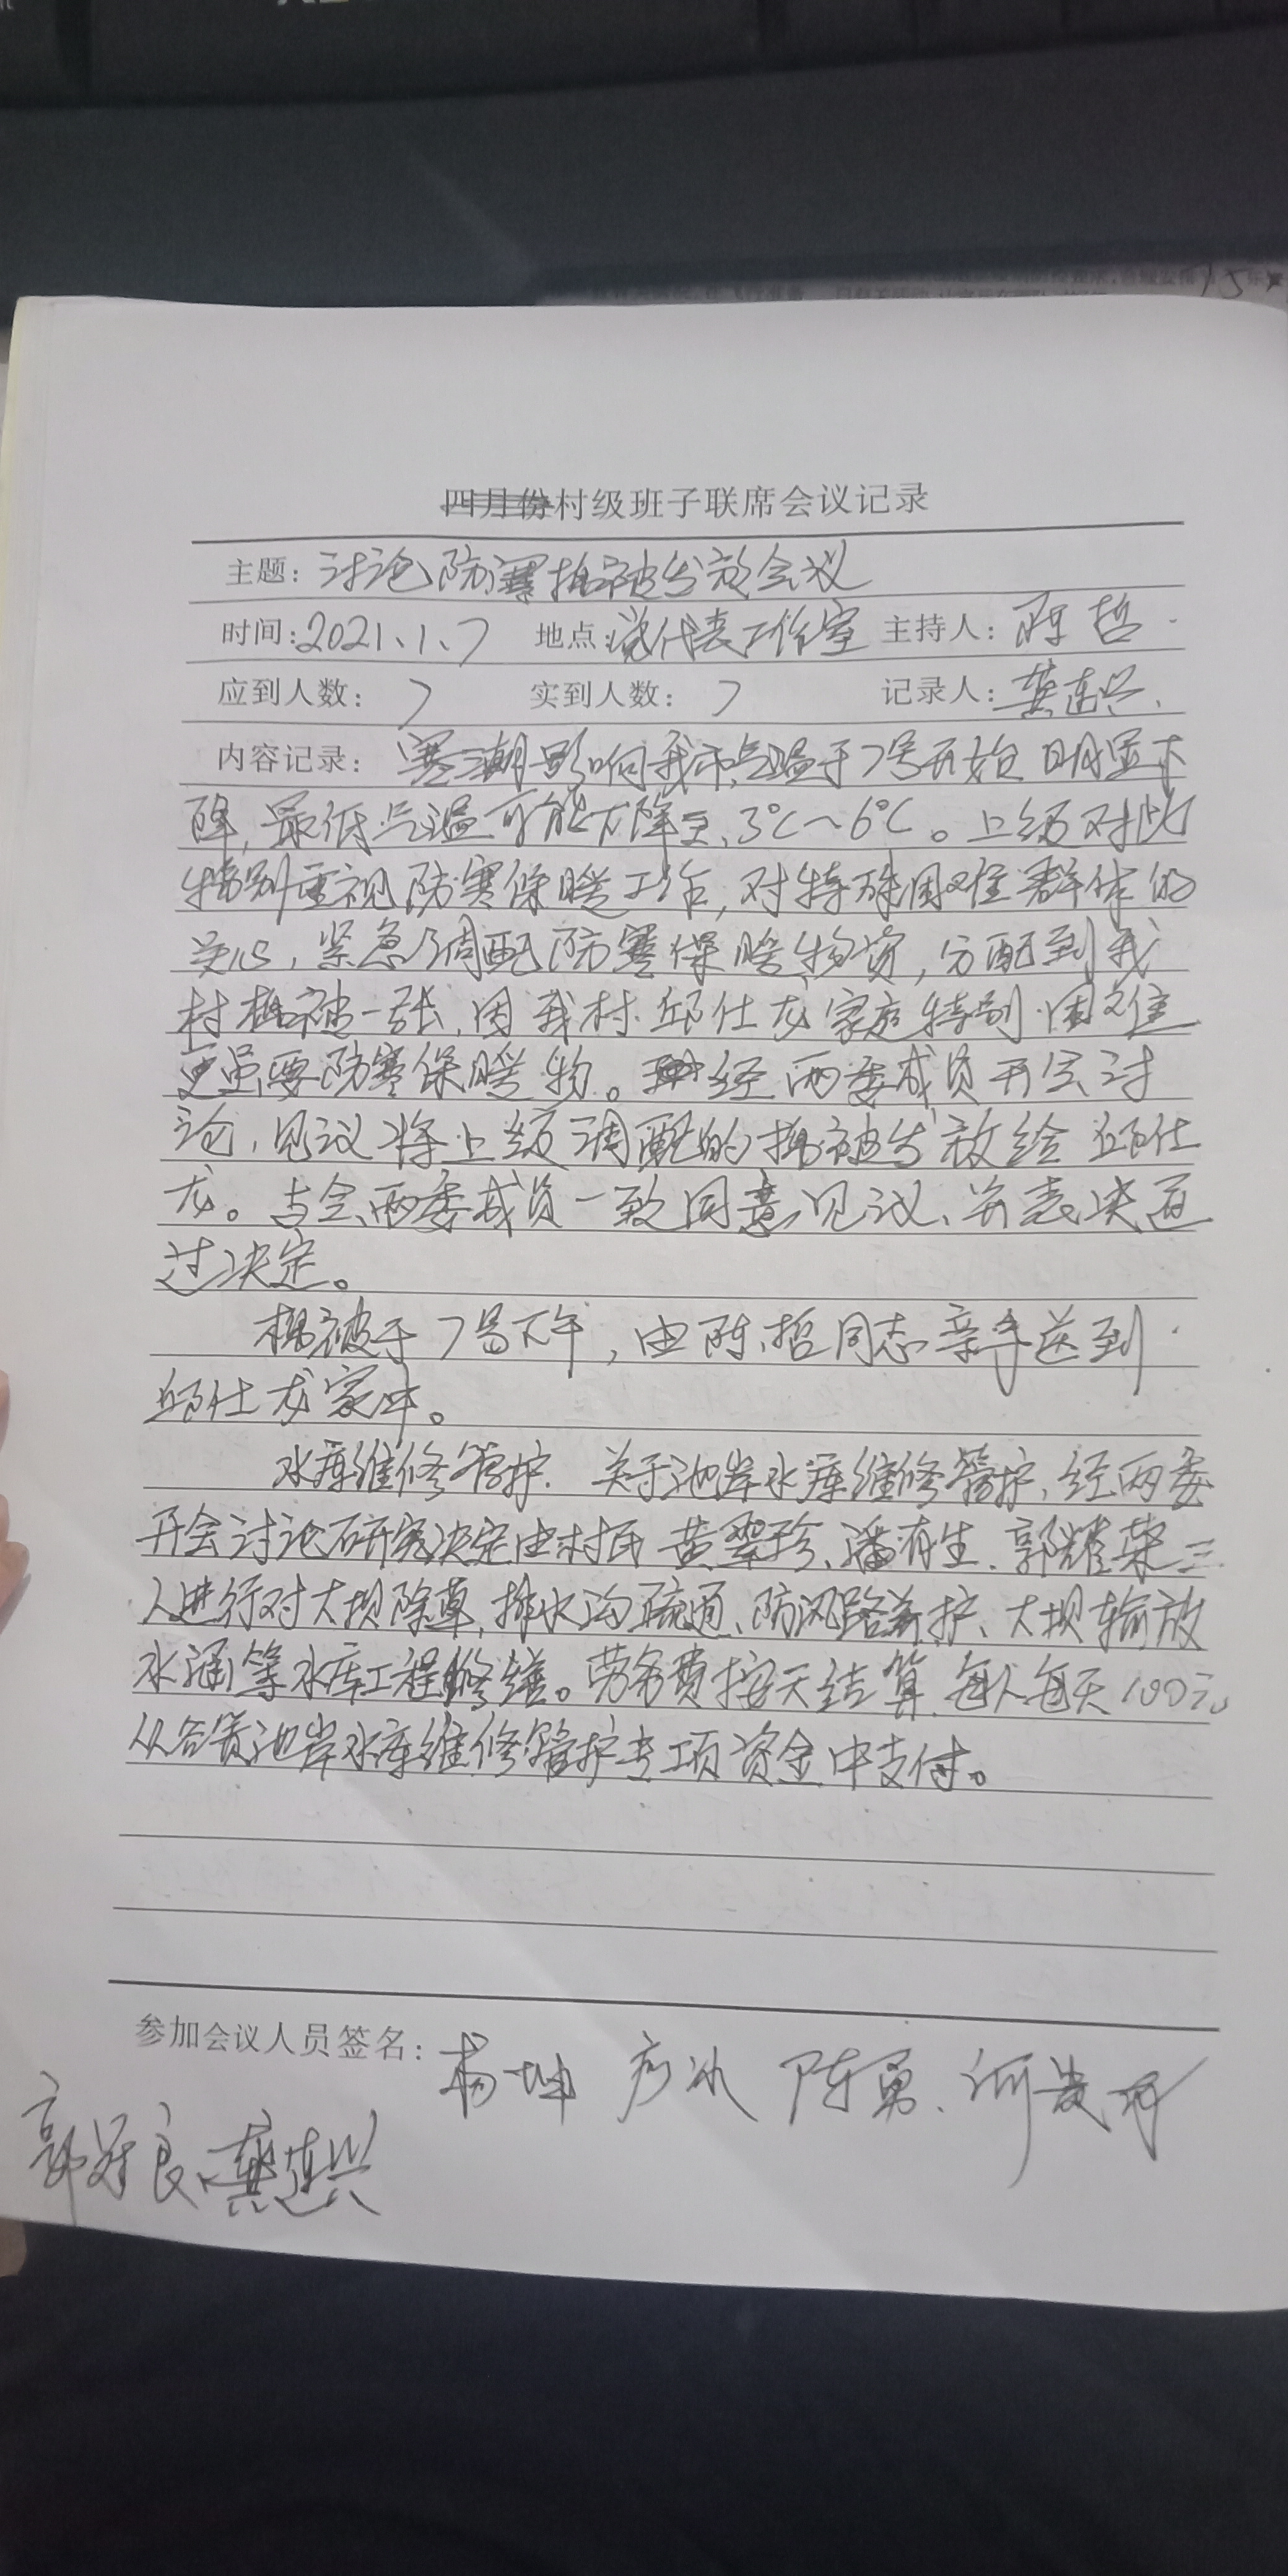 四月份村级班子联席会议记录
主题：讨论防寒棉被发放会议
时间：2021、1、7 地点：党代表工作室 主持人：陈哲
应到人数：7 实到人数：7 记录人：龚连兴
内容记录：寒潮影响我市气温于7号开始明显下
降，最低气温可能下降至3℃～6℃。上级对此
特别重视防寒保暖工作，对特殊困难群体的
关心，紧急调配防寒保暖物资，分配到我
村棉被一张，因我村邱仕龙家庭特别困难
更虽要防寒保暖物。经两委成员开会讨
论，见议将上级调配的棉被发放给邱仕
龙。占会两委成员一致同意见议、并表决通
过决定。
棉被于7号下午，由陈哲同志亲手送到
邱仕龙家中。
水库维修管护．关于池岸水库维修管护，经两委
开会讨论研究决定由村民黄翠珍、潘有生、郭耀荣三
人进行对大坝除草，排水沟疏通、防汛路养护、大坝输放
水涵等水库工程修缮。劳务费按天结算，每人每天100元。
从谷贵池岸水库维修管护专项资金中支付。
参加会议人员签名：杨坤 彦冰 陈勇、何
郭 良、龚连兴